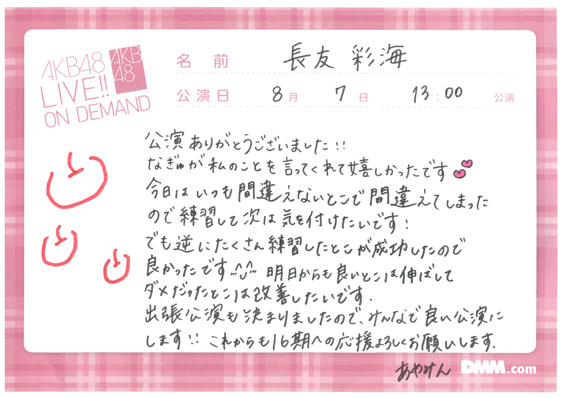 AKB48
LIVE!!
ON DEMAND
AKB
48
名前 長友 彩海
公演日 8月 7日 13:00 公演
公演ありがとうございました!!
なぎゅが私のことを言ってくれて嬉しかったです
今日はいつも間違えないとこで間違えてしまった
ので練習して次は気を付けたいです!
でも逆にたくさん練習したとこが成功したので
良かったです 明日からも良いとこは伸ばして
ダメだったとこは改善したいです.
出張公演も決まりましたので、みんなで良い公演に
します!! これからも16期への応援よろしくお願いします.
あやみん
DMM.com